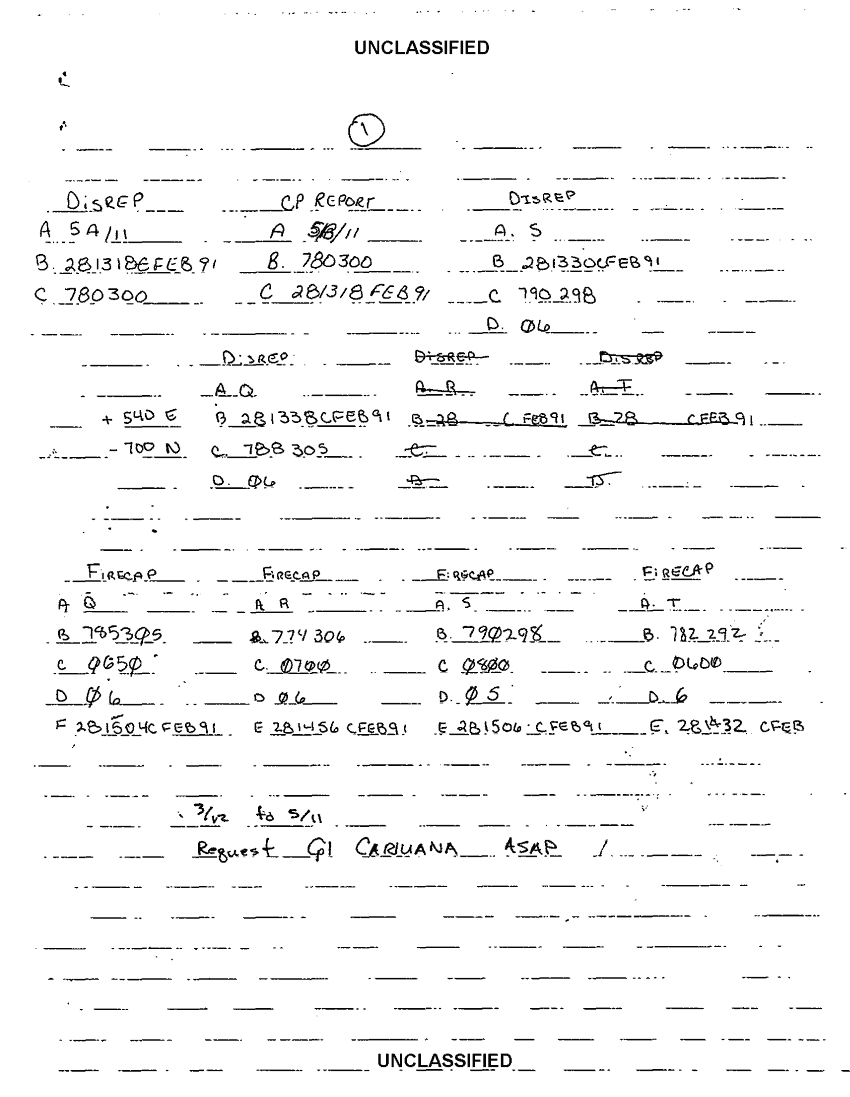 UNCLASSIFIED
1
DISREP CP REPORT DISREP
A 5A/11 A 5B/11 A. S
B. 281318CFEB91 B. 780300 B 281330CFEB91
C 780300 C 281318 FEB91 C 790 298
D. Ø6
DISREP DISREP DISREP
A Q A R A. T
+ 540 E B 281338CFEB91 B 28 C FEB91 B 28 CFEB91
- 700 N C. 788 305 C. C.
D. Ø6 D D.
FIRECAP FIRECAP FIRECAP FIRECAP
A Q A R A. S A. T
B 7853Ø5 B. 774306 B. 790298 B. 782 292
C Ø65Ø C. Ø7ØØ C Ø8ØØ C. Ø6ØØ
D Ø6 D Ø6 D. Ø5 D. 6
F 281504C FEB91 E 281456 CFEB91 E 281506 CFEB91 E. 281432 CFEB
3/12 to 5/11
Request G1 CARUANA ASAP /
UNCLASSIFIED